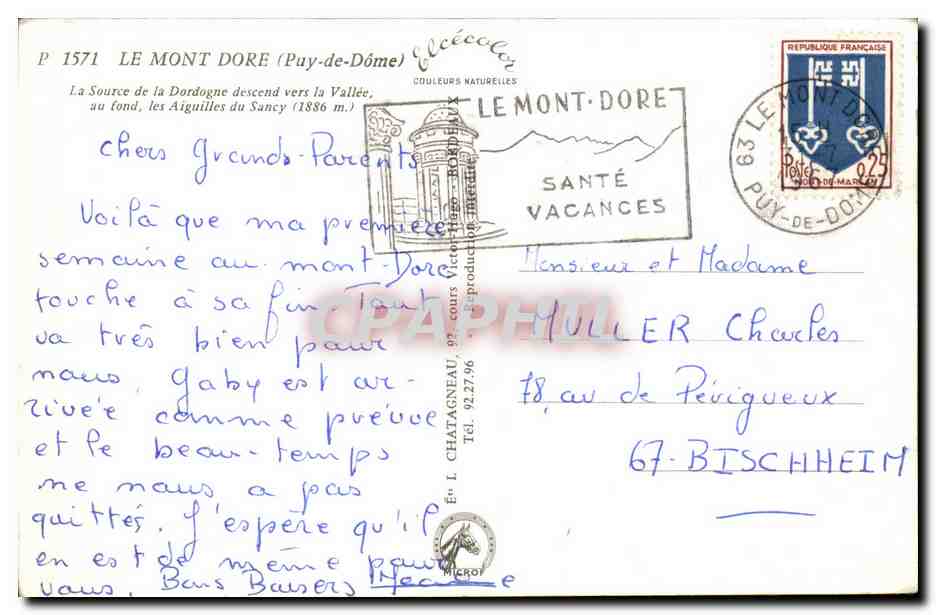 P 1571 LE MONT DORE (Puy-de-Dôme)
La Source de la Dordogne descend vers la Vallée,
au fond, les Aiguilles du Sancy (1886 m.)
Elcécolor
COULEURS NATURELLES
LE MONT-DORE
SANTÉ
VACANCES
63 LE MONT DORE
PUY-DE-DOME
REPUBLIQUE FRANÇAISE
Postes
0,25
MONT-DE-MARSAN
Chers Grands-Parents
Voilà que ma première
semaine au mont-Dore
touche à sa fin. Tout
va très bien pour
nous. Gaby est ar-
rivée comme prévue
et le beau-temps
ne nous a pas
quittés. J'espère qu'il
en est de même pour
vous. Bons Baisers
Ets I. CHATAGNEAU, 92, cours Victor-Hugo - BORDEAUX
Tél. 92.27.96 - Reproduction interdite
MICRO
Monsieur et Madame
MULLER Charles
78, av de Périgueux
67-BISCHHEIM
CPAPHIL